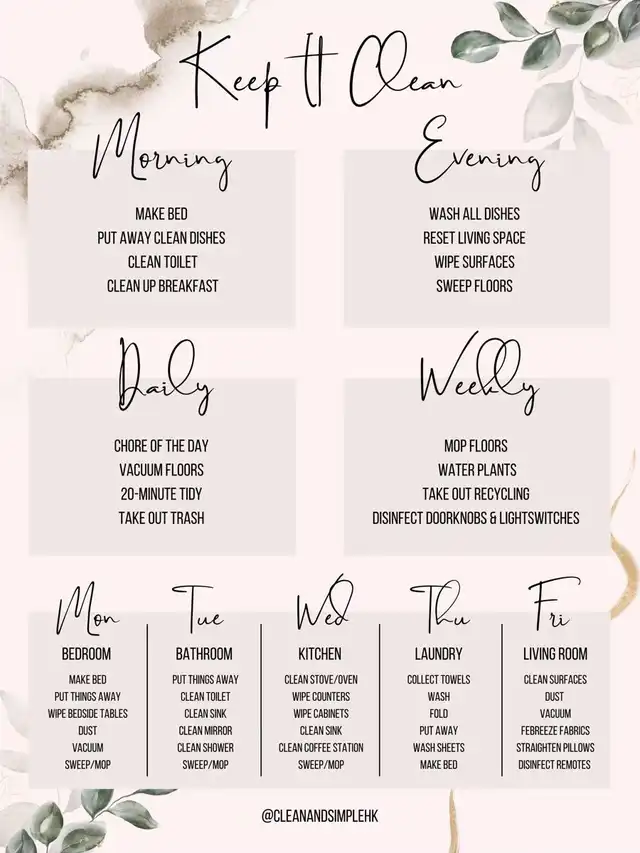 Keep It Clean
Morning
MAKE BED
PUT AWAY CLEAN DISHES
CLEAN TOILET
CLEAN UP BREAKFAST
Evening
WASH ALL DISHES
RESET LIVING SPACE
WIPE SURFACES
SWEEP FLOORS
Daily
CHORE OF THE DAY
VACUUM FLOORS
20-MINUTE TIDY
TAKE OUT TRASH
Weekly
MOP FLOORS
WATER PLANTS
TAKE OUT RECYCLING
DISINFECT DOORKNOBS & LIGHTSWITCHES
Mon
BEDROOM
MAKE BED
PUT THINGS AWAY
WIPE BEDSIDE TABLES
DUST
VACUUM
SWEEP/MOP
Tue
BATHROOM
PUT THINGS AWAY
CLEAN TOILET
CLEAN SINK
CLEAN MIRROR
CLEAN SHOWER
SWEEP/MOP
Wed
KITCHEN
CLEAN STOVE/OVEN
WIPE COUNTERS
WIPE CABINETS
CLEAN SINK
CLEAN COFFEE STATION
SWEEP/MOP
Thu
LAUNDRY
COLLECT TOWELS
WASH
FOLD
PUT AWAY
WASH SHEETS
MAKE BED
Fri
LIVING ROOM
CLEAN SURFACES
DUST
VACUUM
FEBREEZE FABRICS
STRAIGHTEN PILLOWS
DISINFECT REMOTES
@CLEANANDSIMPLEHK